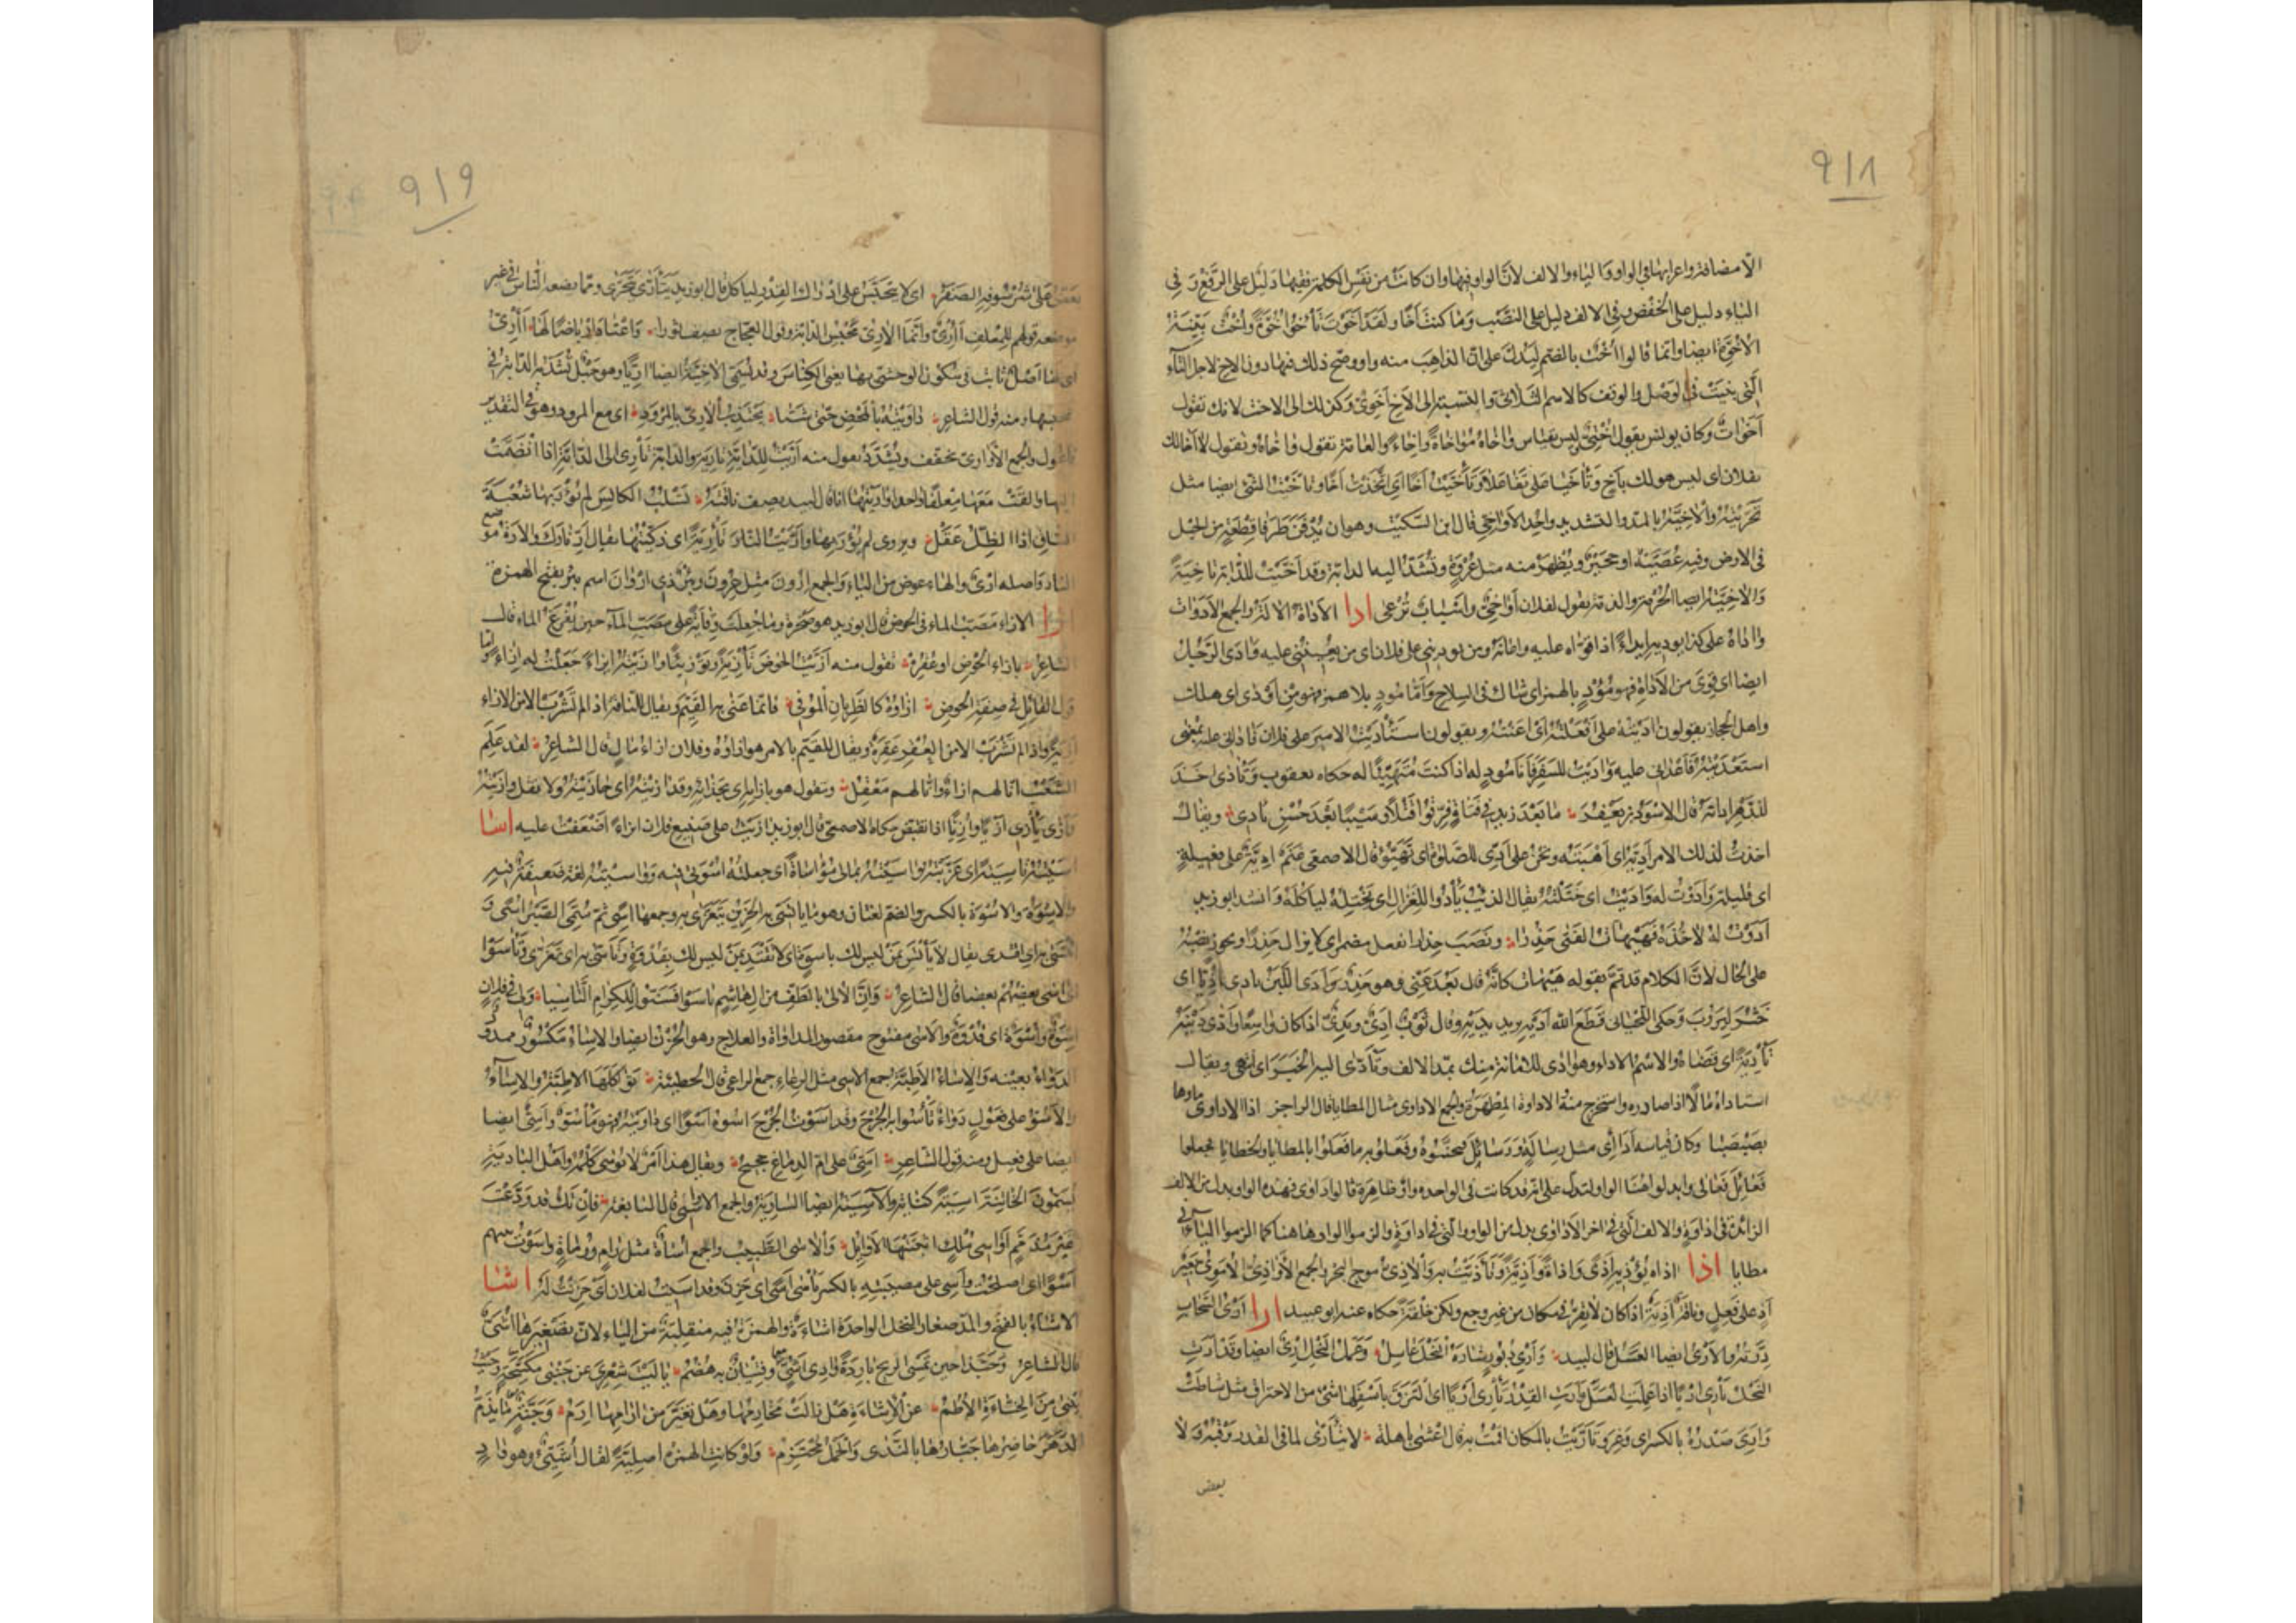 ٩١٨
الّا مضافة واعرابها فى الواو والياء والالف لانّ الواو فيها وان كانت من نفس الكلمة ففيها دليل على الرفع وفى
الياء دليل على الخفض وفى الالف دليل على النصب وما كنت أخًا ولقد أخوت تأخوا أخوّة وأخت بيّنة
الأخوّة ايضا وانما قالوا أخت بالضم ليدلّ على انّ الذاهب منه واو وصحّ ذلك فيها دون الاخ لاجل التآء
التى ثبتت فى الوصل والوقف كالاسم الثلاثىّ والنسبة الى الأخ أخوىّ وكذلك الى الاخت لانك تقول
أخوات وكان يونس يقول أختىّ وليس بقياس وآخاه مؤاخاة وإخاء والعامة تقول واخاه وتقول لا أخا لك
بفلان اى ليس هو لك بأخ وتآخيا على تفاعلا وتأخّيت أخًا اى اتّخذت أخًا وتأخّيت الشئ ايضا مثل
تحرّيته والآخيّة بالمدّ والتشديد واحد الأواخىّ قال ابن السكيت وهو ان يدفن طرفا قطعة من الحبل
فى الارض وفيه عصيّة او حجير ويظهر منه مثل عروة وتشدّ اليه الدابة وقد أخّيت للدّابة تأخية
والآخيّة ايضا الحرمة والذمّة تقول لفلان أواخىّ وأسباب ترعى ادا الأداة الآلة والجمع الأدوات
وآداه على كذا يوديه ايداءً اذا قوّاه عليه واعانه ومن يوديني على فلان اى من يعينني عليه وآدى الرّجل
ايضا اى قوى من الأداة فهو مؤد بالهمز اى شاك فى السلاح وأمّا مود بلا همز فهو من أودى اى هلك
واهل الحجاز يقولون آديته على أفعلته اى أعنته ويقولون استأديت الامير على فلان فآدانى عليه بمعنى
استعديته فأعدانى عليه وآديت للسفر فأنا مود له اذا كنت متهيّئًا له حكاه يعقوب وتآدى اخذ
للدّهر اداته قال الاسود بن يعفر ما بعد زيد فى فتاة فرّقوا قتلا وسبيا بعد حسن تآدى ويقال
اخذت لذلك الامر أديّه اى أهبته ونحن على أدىّ للصّلوة اى تهيّئ قال الاصمعى غنم أديّة على فعيلة
اى قليلة وأدوت له وأديت اى ختلته يقال الذئب يأدوا للغزال اى يختله ليأكله وانشد ابو زيد
أدوت له لآخذه فهيهات الفتى حذرا ونصب حذرا بفعل مضمر اى لا يزال حذرا ويجوز نصبه
على الحال لانّ الكلام قد تمّ بقوله هيهات كانّه قال بعد عنّى وهو حذر وأدى اللّبن يأدى أديّا اى
خثر ليروب وحكى اللحيانى قطع الله أديه يريد يديه وقال ثوب أدىّ ويدىّ اذا كان واسعا وأدّى دينه
تأدية اى قضاه والاسم الاداء وهو آدى للامانة منك بمدّ الالف وتأدّى اليه الخبر اى انتهى ويقال
استأداه مالًا اذا صادره واستخرج منه الاداوة المطهرة والجمع الاداوى مثال المطايا قال الراجز اذا الاداوى ماؤها
تصبصبا وكان قياسه أدائى مثل رسالة ورسائل فتجنّبوه وفعلوا به ما فعلوا بالمطايا والخطايا فجعلوا
فعائل فعالى وابدلوا هنا الواو لتدلّ على انّه قد كانت فى الواحدة واو ظاهرة قالوا داوى فهذه الواو بدل من الالف
الزائدة فى اداوة والالف الّتى فى اخر الأداوى بدل من الواو الّتى فى اداوة والزموا الواو هاهنا كما الزموا الياء فى
مطايا اذا اذاه يؤذيه أذى وأذاة وأذيّة وتأذّيت به والآذىّ موج البحر والجمع الأواذىّ الأموىّ بعير
أذ على فعل وناقة أذية اذا كان لا يقرّ فى مكان من غير وجع ولكن خلقة حكاه عنه ابو عبيد ارا أرى السّحاب
درّته والأرى ايضا العسل قال لبيد وأرى دبور شاره النحل عاسل وعمل النحل أرى ايضا وقد أرت
النحل تأرى أريًا اذا عملت العسل وأرت القدر تأرى أريًا اى التزق بأسفلها شئ من الاحتراق مثل شاطت
وأرى صدره بالكسر اى وغر وتأرّيت بالمكان اقمت به قال اعشى باهلة لا يتأرّى لما فى القدر يرقبه ولا
بعض
٩١٩
يعضّ على شرسوفه الصفر اى لا يتحبّس على ادراك القدر ليأكل قال ابو زيد يتأرّى يتحرّى وممّا يضعه الناس فى غير
موضعه قولهم للمعلف آرىّ وانّما الآرىّ محبس الدابّة وقول العجاج يصف ثورا واعتاد ارباضا لها آرىّ
اى لها أصل ثابت فى سكون الوحشىّ بها يعنى الكناس وقد تسمّى الآخيّة ايضا آريّا وهو حبل تشدّ به الدّابّة فى
محبسها ومنه قول الشاعر داويته بالمحض حتى شتا يجتذب الآرىّ بالمرود اى مع المرود وهو فى التقدير
فاعول والجمع الأوارىّ يخفف ويشدّد تقول منه أرّيت للدّابّة تأرية والدابّة تأرى الى الدّابّة اذا انضمّت
اليها والفت معها معلفا واحدا وآريتها انا قال لبيد يصف ناقته تسلب الكانس لم يؤر بها شعبة
الساق اذا الظلّ عقل ويروى لم يؤر بها وأرّيت النار تأرية اى ذكّيتها يقال أرّ نارك والإرة موضع
النار واصله إرى والهاء عوض من الياء والجمع إرون مثل عزون وبئر ذى أروان اسم بئر بفتح الهمزة
ازا الازاء مصبّ الماء فى الحوض قال ابو زيد هو صخرة وما جعلت وقاية على مصبّ المآء حين يفرغ الماء قال
الشاعر بازاء الحوض او عقره تقول منه أزّيت الحوض تأزية وتوزيئًا وآزيته ايزاءً جعلت له ازاءً وامّا
قول القائل فى صفة الحوض ازاؤه كالظربان الموفى فانّما عنى به القيّم ويقال للناقة اذا لم تشرب الا من الازاء
أزية واذا لم تشرب الا من العقر عقرة ويقال للقيّم بالامر هو ازاؤه وفلان ازاء مال قال الشاعر لقد علم
الشعب انّا لهم ازاءٌ وانّا لهم معقل وتقول هو بازائه اى بحذائه وقد آزيته اى حاذيته ولا تقل وازيته
وأزى يأزى أزيًا وأزيّا اذا تقبّض حكاه الاصمعىّ قال ابو زيد آزيت على صنيع فلان ايزاءً اضعفت عليه اسا
اسّيته تأسية اى عزّيته وآسيته بمالى مؤاساة اى جعلته اسوتى فيه وواسيته لغة ضعيفة فيه
والإسوة والأسوة بالكسر والضم لغتان وهو ما يأتسى به الحزين يتعزّى به وجمعها أسى ثم سمّى الصبر أسى و
ائتسى به اى اقتدى يقال لا تأتس بمن ليس لك باسوة اى لا تقتد بمن ليس لك بقدوة وتأسّى به اى تعزّى وتآسوا
اى آسى بعضهم بعضا قال الشاعر وانّ الألى بالطفّ من آل هاشم تآسوا فسنّوا للكرام التّآسيا ولى فى فلان
إسوة وأسوة اى قدوة والأسى مفتوح مقصور المداواة والعلاج وهو الحزن ايضا والإساء مكسور ممدود
الدواء بعينه والإساء الأطبّة جمع الآسى مثل الرعاء جمع الراعى قال الحطيئة تواكلها الاطبّة والإساء
والأسوّ على فعول دواء تأسوا به الجرح وقد أسوت الجرح اسوه أسوًا اى داويته فهو مأسوّ وأسىّ ايضا
ايضا على فعيل ومنه قول الشاعر أسىّ على امّ الدماغ حجيج ويقال هذا امر لا يوسى كلمه واهل البادية
يسمّون الخاتنة آسية كناية والآسية ايضا السارية والجمع الاواسى قال النابغة فان تك قد ودّعت
غير مذمّم أواسى ملك اثبتتها الاوايل والآسى الطّبيب والجمع أساة مثل رام ورماة وأسوت بينهم
أسوًا اى اصلحت وأسى على مصيبته بالكسر يأسى أسى اى حزن وقد أسيت لفلان اى حزنت له اشا
الاشاء بالفتح والمدّ صغار النخل الواحدة اشاءة والهمزة فيه منقلبة من الياء لانّ تصغيرها أشىّ
قال الشاعر وحبّذا حين تمسى الريح باردة وادى أشىّ وفتيان به هضم يا ليت شعرى عن جنبى مكشّحة وحيث
يبنى من الحناءة الأطم عن الأشاءة هل زالت مخارمها وهل تغيّر من آرامها ارم وجنّة ما يذمّ
الدهر حاضرها جبّارها بالندى والحمل محتزم ولو كانت الهمزة اصليّة لقال أشيّئ وهو واد